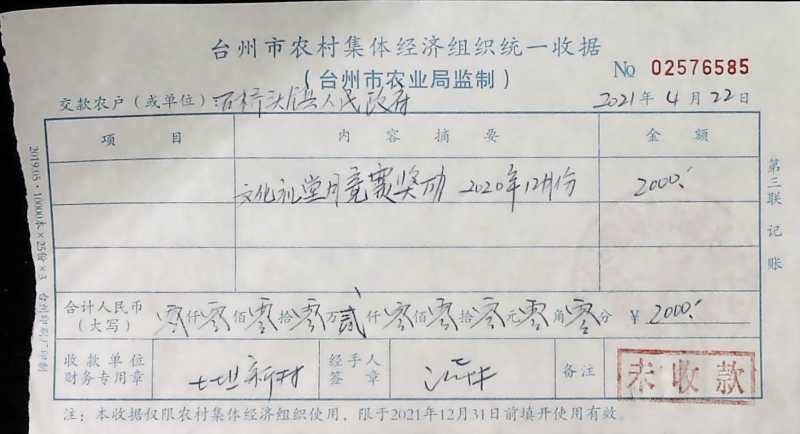 台州市农村集体经济组织统一收据
(台州市农业局监制)
No 02576585
交款农户(或单位) 石桥头镇人民政府 2021年4月22日
项目 内容摘要 金额
文化礼堂月竞赛奖励 2020年12月份 2000.-
合计人民币(大写) 零仟零佰零拾零万贰仟零佰零拾零元零角零分 ¥ 2000.-
收款单位财务专用章 新村 经手人签章 备注 未收款
注:本收据仅限农村集体经济组织使用,限于2021年12月31日前填开使用有效。
第三联 记账
2019.05·10000本×25份×3